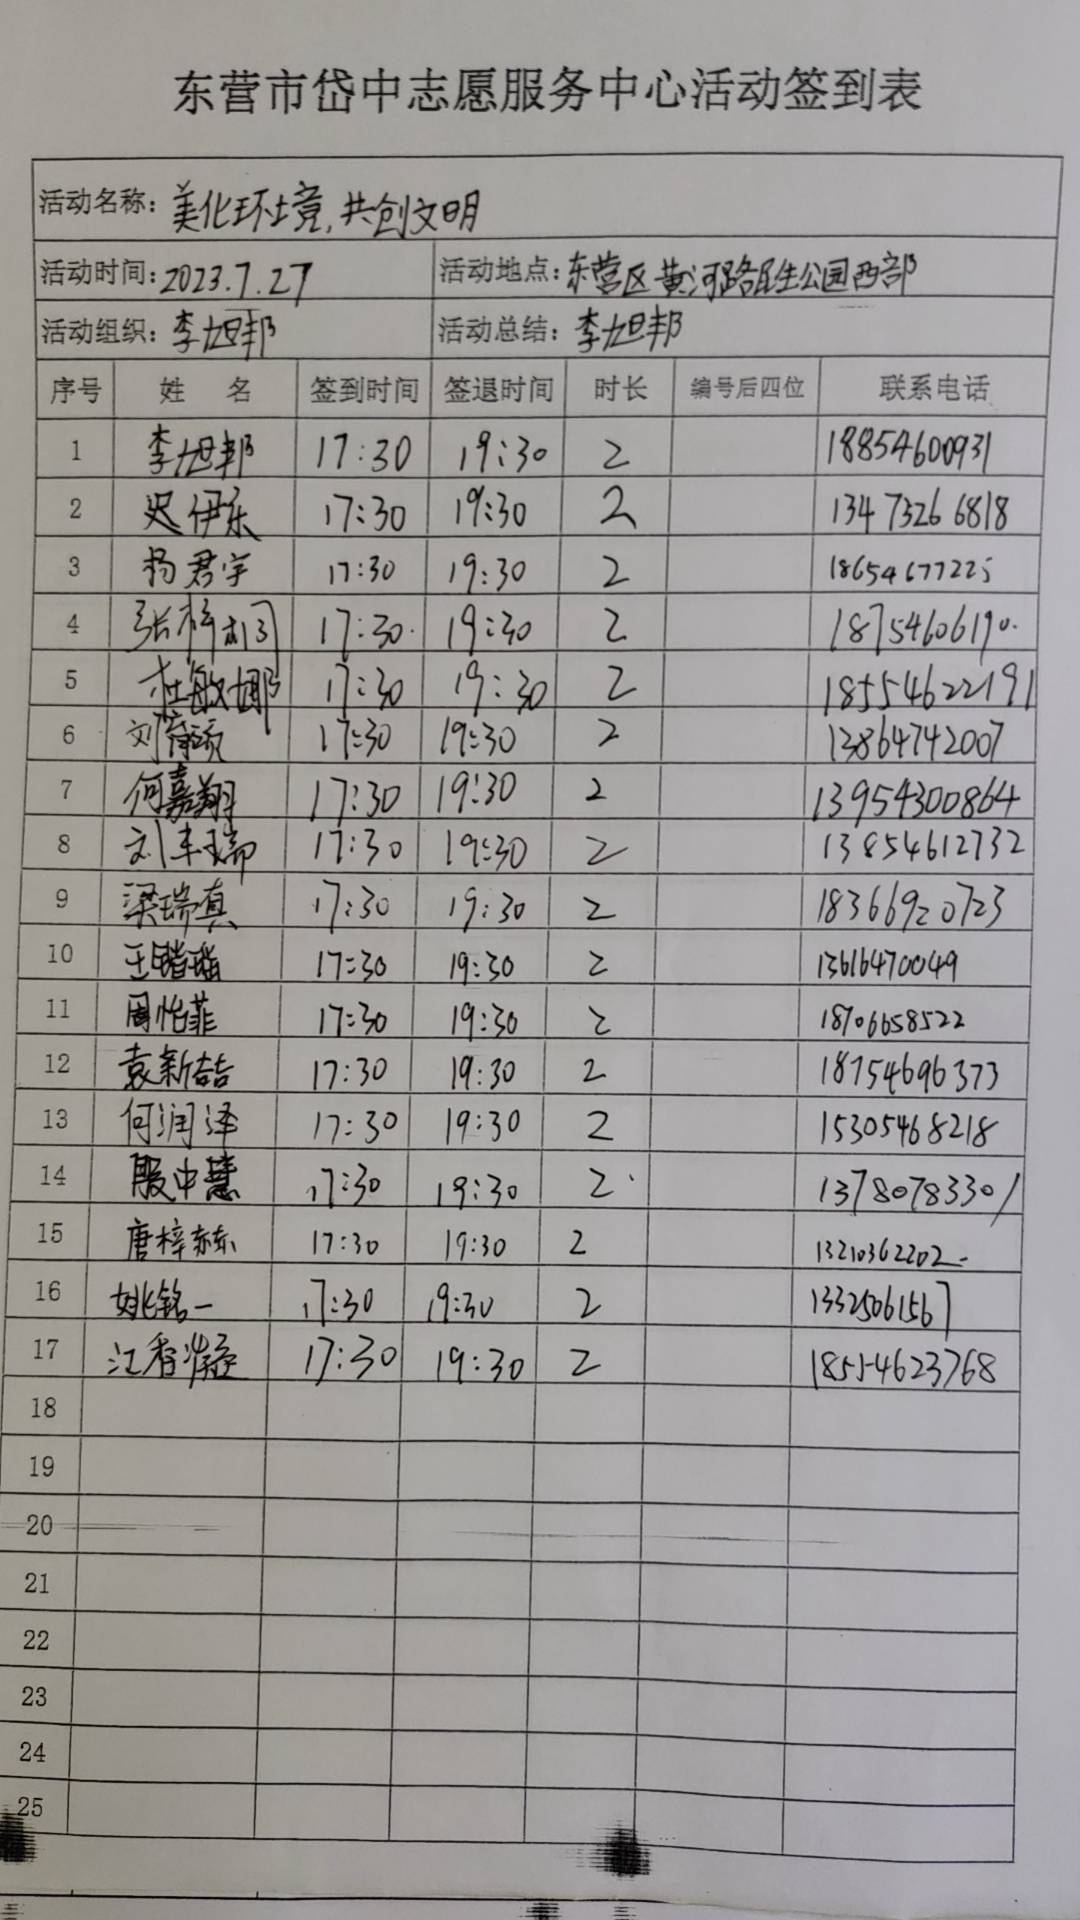 东营市岱中志愿服务中心活动签到表
活动名称: 美化环境,共创文明
活动时间: 2023.7.27 活动地点: 东营区黄河路民生公园西部
活动组织: 李旭邦 活动总结: 李旭邦
序号 姓 名 签到时间 签退时间 时长 编号后四位 联系电话
1 李旭邦 17:30 19:30 2 18854600931
2 迟伊乐 17:30 19:30 2 13473266818
3 杨君宇 17:30 19:30 2 18654677225
4 张梓桐 17:30 19:30 2 18754606190
5 杜敏娜 17:30 19:30 2 18554622191
6 刘 17:30 19:30 2 13864742007
7 何嘉翔 17:30 19:30 2 13954300864
8 刘 瑞 17:30 19:30 2 13854612732
9 梁瑞真 17:30 19:30 2 18366920723
10 王 17:30 19:30 2 13616470049
11 周怡菲 17:30 19:30 2 18706658522
12 袁新喆 17:30 19:30 2 18754696373
13 何润泽 17:30 19:30 2 15305468218
14 殷中慧 17:30 19:30 2 13780783301
15 唐梓赫 17:30 19:30 2 13210362202
16 姚铭一 17:30 19:30 2 13325061567
17 江香凝 17:30 19:30 2 18554623768
18
19
20
21
22
23
24
25